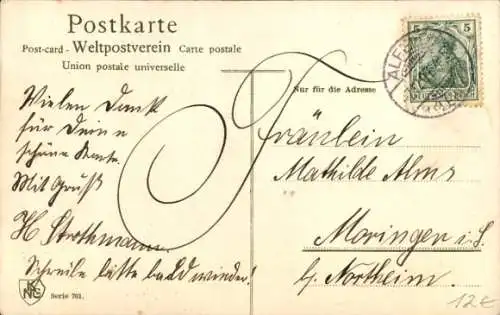 Postkarte
Post-card - Weltpostverein Carte postale
Union postale universelle
Nur für die Adresse
5 5
ALF
Vielen Dank
für Deine
schöne Karte.
Mit Gruß
H Strothmann
Schreibe bitte bald wieder!
Fräulein
Mathilde Alms
Moringen i. S.
b. Northeim.
Serie 761.
12€